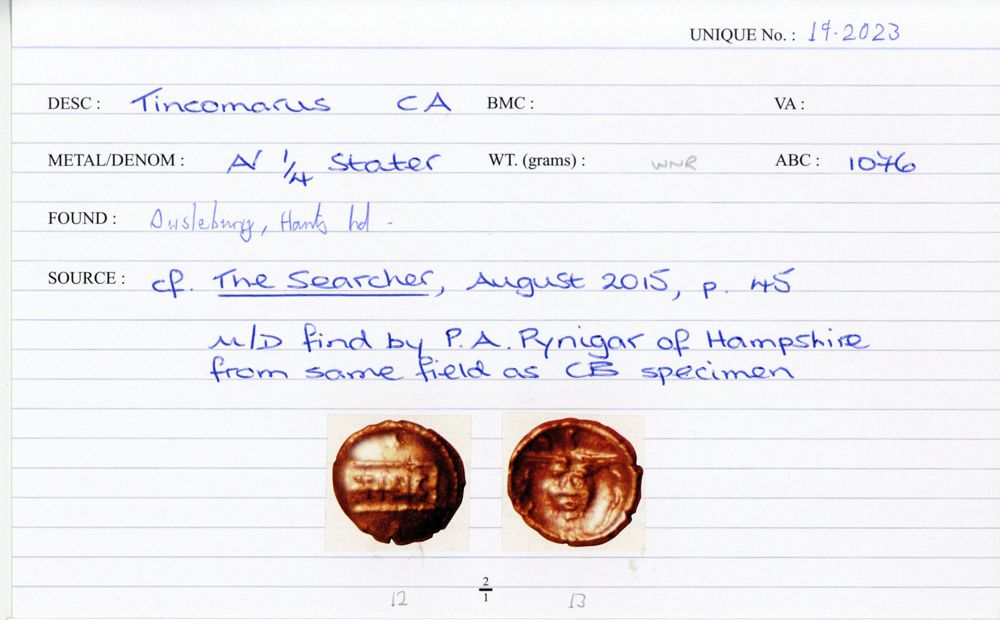 UNIQUE No. : 19.2023
DESC : Tincomarus CA BMC : VA :
METAL/DENOM : A/ 1/4 Stater WT. (grams) : WNR ABC : 1076
FOUND : Owslebury, Hants hd -
SOURCE : cf. The Searcher, August 2015, p. 45
M/D find by P.A. Pynigar of Hampshire
from same field as CB specimen
2
1
12 13